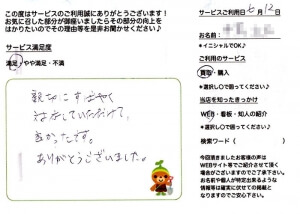 この度はサービスのご利用誠にありがとうございます!
お気に召した部分が御座いましたらその部分の向上を
はかりたいのでその理由等を是非お聞かせください♪
サービス満足度
満足・やや満足・不満
親切にすばやく
はなしていただけて、
良かったです。
ありがとうございました。
サービスご利用日 5月 12日
お名前:
*イニシャルでOK♪
ご利用のサービス
買取・購入
*選択し〇で囲ってください♪
当店を知ったきっかけ
WEB・看板・知人の紹介
*選択し〇で囲ってください♪
検索ワード( )
今回頂きましたお客様の声は
WEBサイト等でご紹介させて頂く
場合がございますのでご了承下さい。
お名前や個人が特定出来るような
情報等は確実に伏せての掲載と
なりますのでご安心下さい。